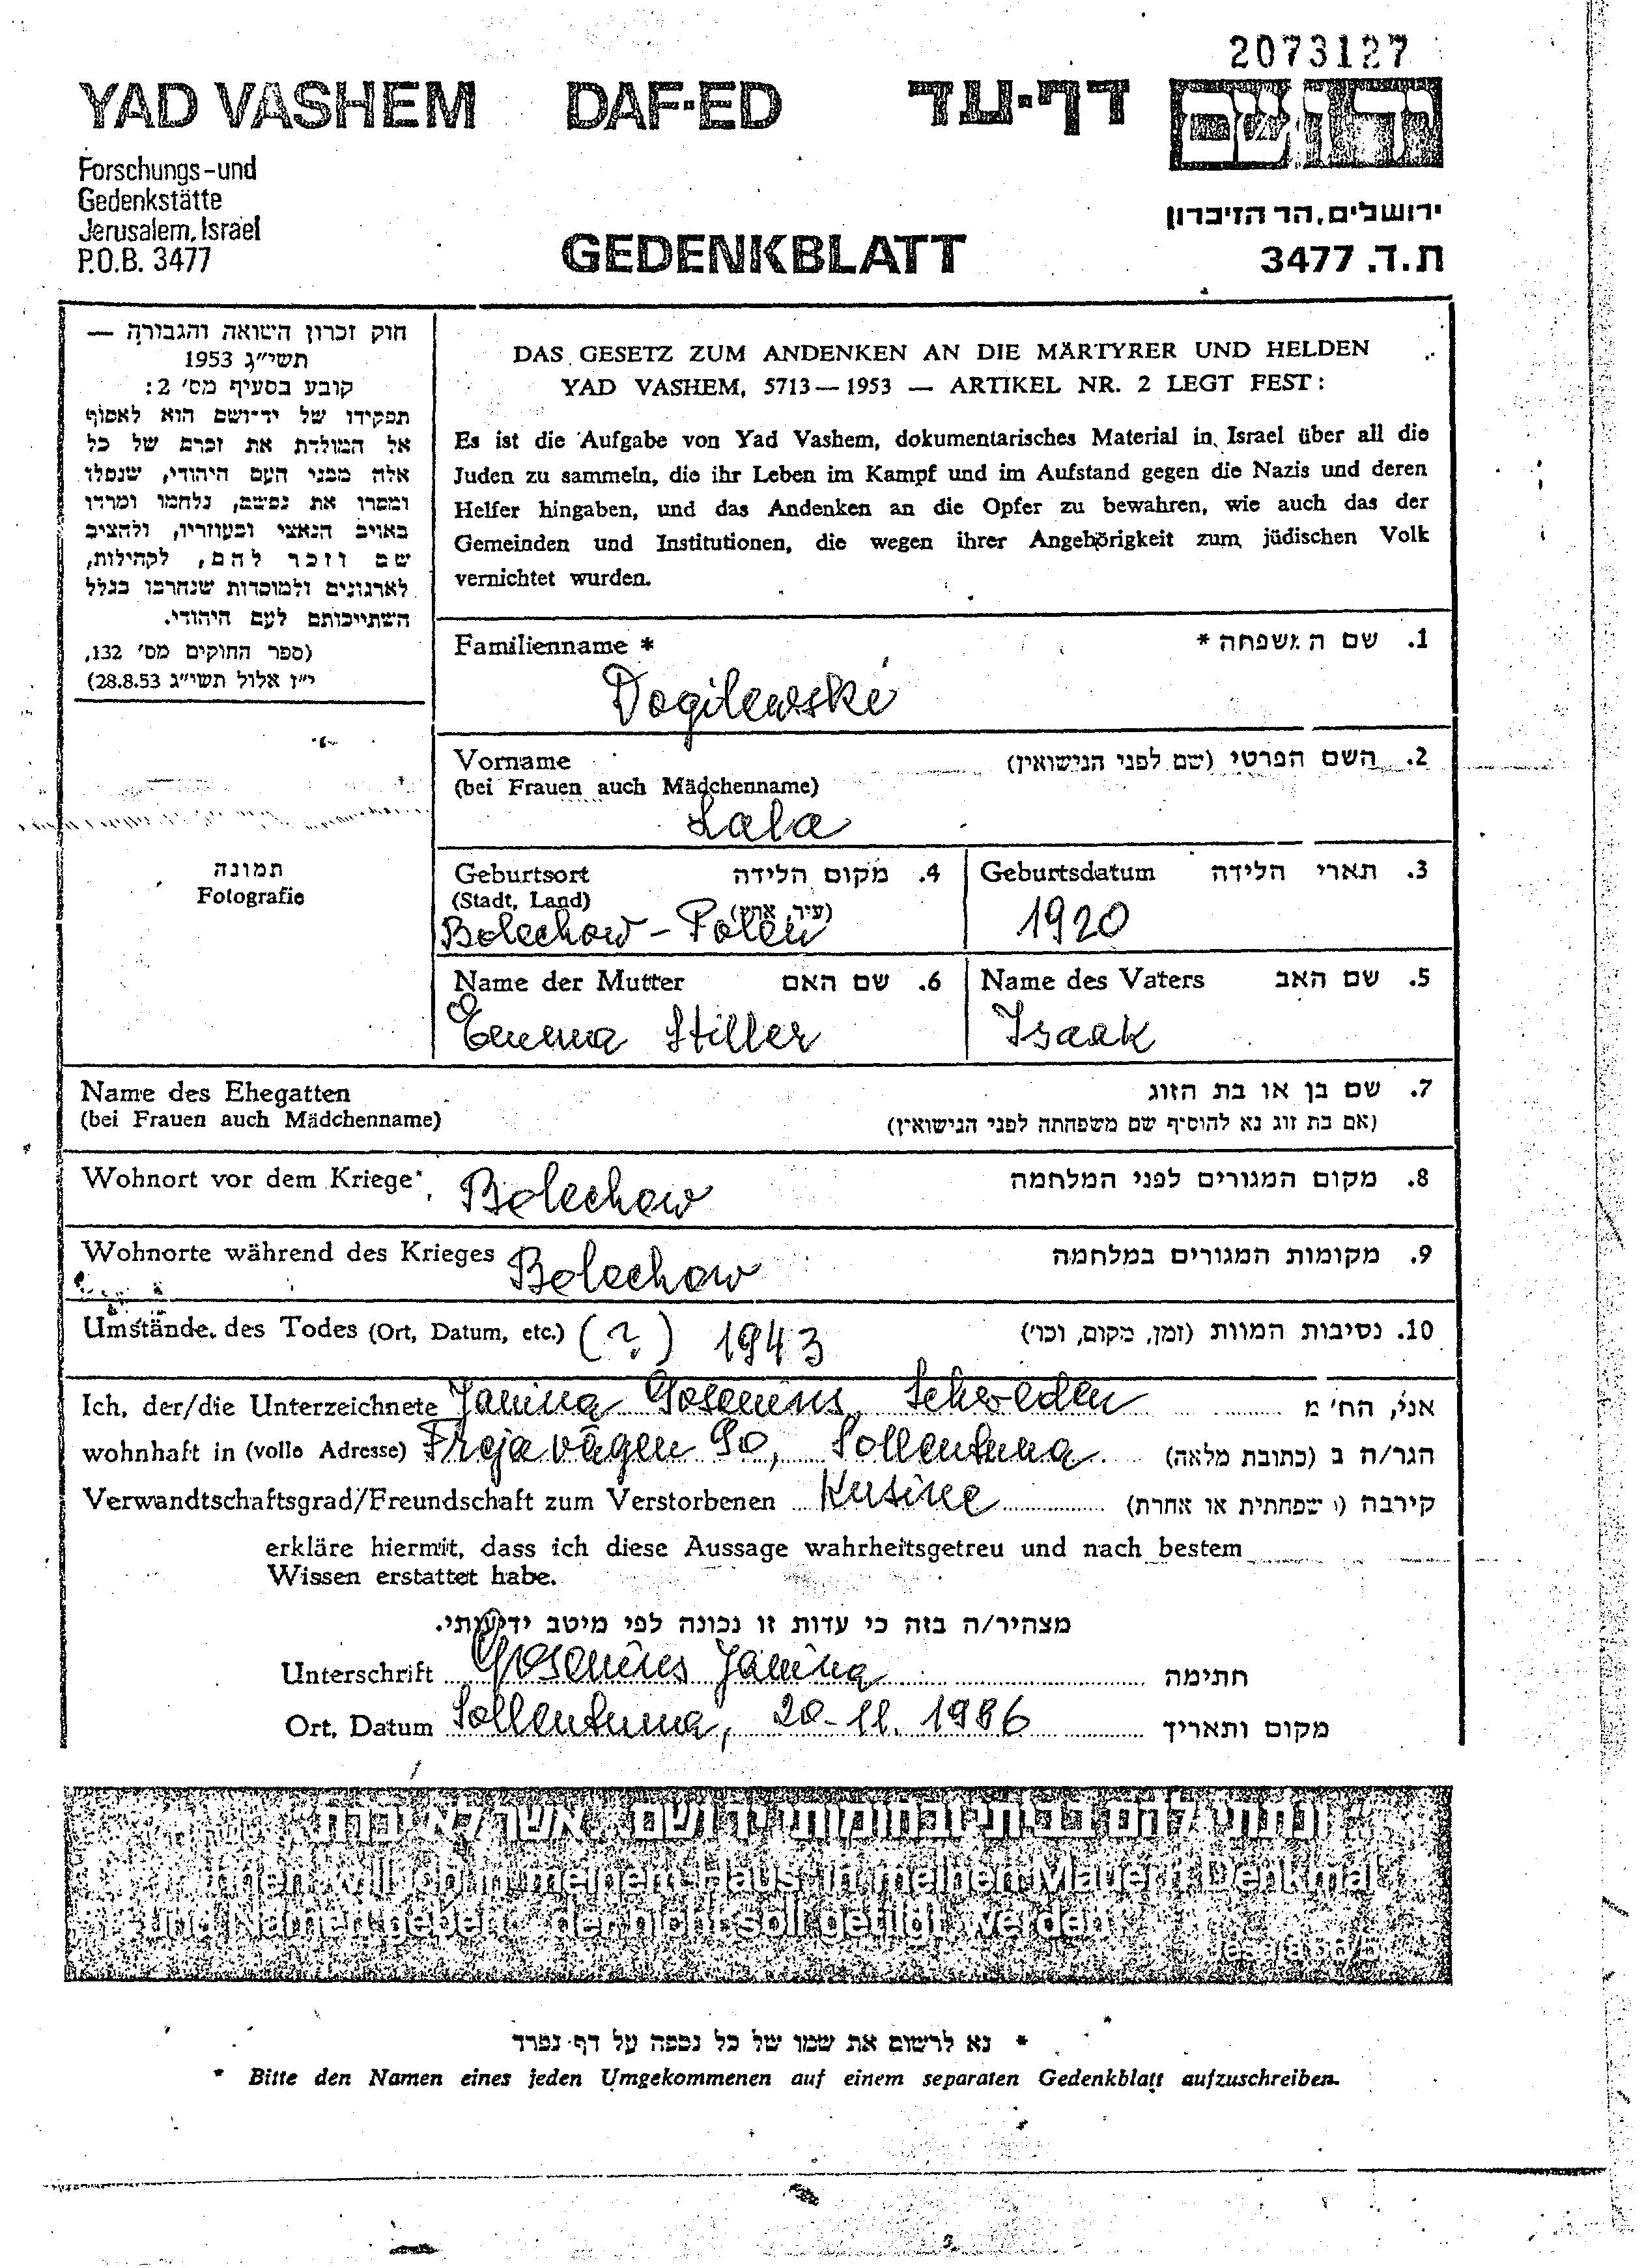 2073127
YAD VASHEM DAF-ED דף-עד ידושם
Forschungs-und
Gedenkstätte
Jerusalem, Israel
P.O.B. 3477
ירושלים, הר הזיכרון
ת.ד. 3477
GEDENKBLATT
חוק זכרון השואה והגבורה —
תשי״ג 1953
קובע בסעיף מס׳ 2:
תפקידו של יד־ושם הוא לאסוף
אל המולדת את זכרם של כל
אלה מבני העם היהודי, שנפלו
ומסרו את נפשם, נלחמו ומרדו
באויב הנאצי ובעוזריו, ולהציב
שם וזכר להם, לקהילות,
לארגונים ולמוסדות שנחרבו בגלל
השתייכותם לעם היהודי.
(ספר החוקים מס׳ 132,
י״ז אלול תשי״ג 28.8.53)
DAS GESETZ ZUM ANDENKEN AN DIE MÄRTYRER UND HELDEN
YAD VASHEM, 5713—1953 — ARTIKEL NR. 2 LEGT FEST:
Es ist die Aufgabe von Yad Vashem, dokumentarisches Material in Israel über all die
Juden zu sammeln, die ihr Leben im Kampf und im Aufstand gegen die Nazis und deren
Helfer hingaben, und das Andenken an die Opfer zu bewahren, wie auch das der
Gemeinden und Institutionen, die wegen ihrer Angehörigkeit zum jüdischen Volk
vernichtet wurden.
Familienname * 1. שם המשפחה *
Dogilewski
Vorname 2. השם הפרטי (שם לפני הנישואין)
(bei Frauen auch Mädchenname)
Lala
תמונה
Fotografie
Geburtsort 4. מקום הלידה
(Stadt, Land) (עיר, ארץ)
Bolechow - Polen
Geburtsdatum 3. תארי הלידה
1920
Name der Mutter 6. שם האם
Emma Stiller
Name des Vaters 5. שם האב
Isaak
Name des Ehegatten 7. שם בן או בת הזוג
(bei Frauen auch Mädchenname) (אם בת זוג נא להוסיף שם משפחתה לפני הנישואין)
Wohnort vor dem Kriege Bolechow 8. מקום המגורים לפני המלחמה
Wohnorte während des Krieges Bolechow 9. מקומות המגורים במלחמה
Umstände des Todes (Ort, Datum, etc.) (?) 1943 10. נסיבות המוות (זמן, מקום, וכו׳)
Ich, der/die Unterzeichnete Janina Gosenius, Schweden אני, הח׳ מ
wohnhaft in (volle Adresse) Frejavägen 90, Sollentuna הגר/ה ב (כתובת מלאה)
Verwandtschaftsgrad/Freundschaft zum Verstorbenen Kusine קירבה (משפחתית או אחרת)
erkläre hiermit, dass ich diese Aussage wahrheitsgetreu und nach bestem
Wissen erstattet habe.
מצהיר/ה בזה כי עדות זו נכונה לפי מיטב ידיעותי.
Unterschrift Gosenius Janina חתימה
Ort, Datum Sollentuna, 20-11. 1986 מקום ותאריך
„...ונתתי להם בביתי ובחומותי יד ושם... אשר לא יכרת״
Ihnen will ich in meinem Haus, in meinen Mauern Denkmal
und Namen geben... der nicht soll getilgt werden
Jesaja 56/5
* נא לרשום את שמו של כל נספה על דף נפרד
* Bitte den Namen eines jeden Umgekommenen auf einem separaten Gedenkblatt aufzuschreiben.